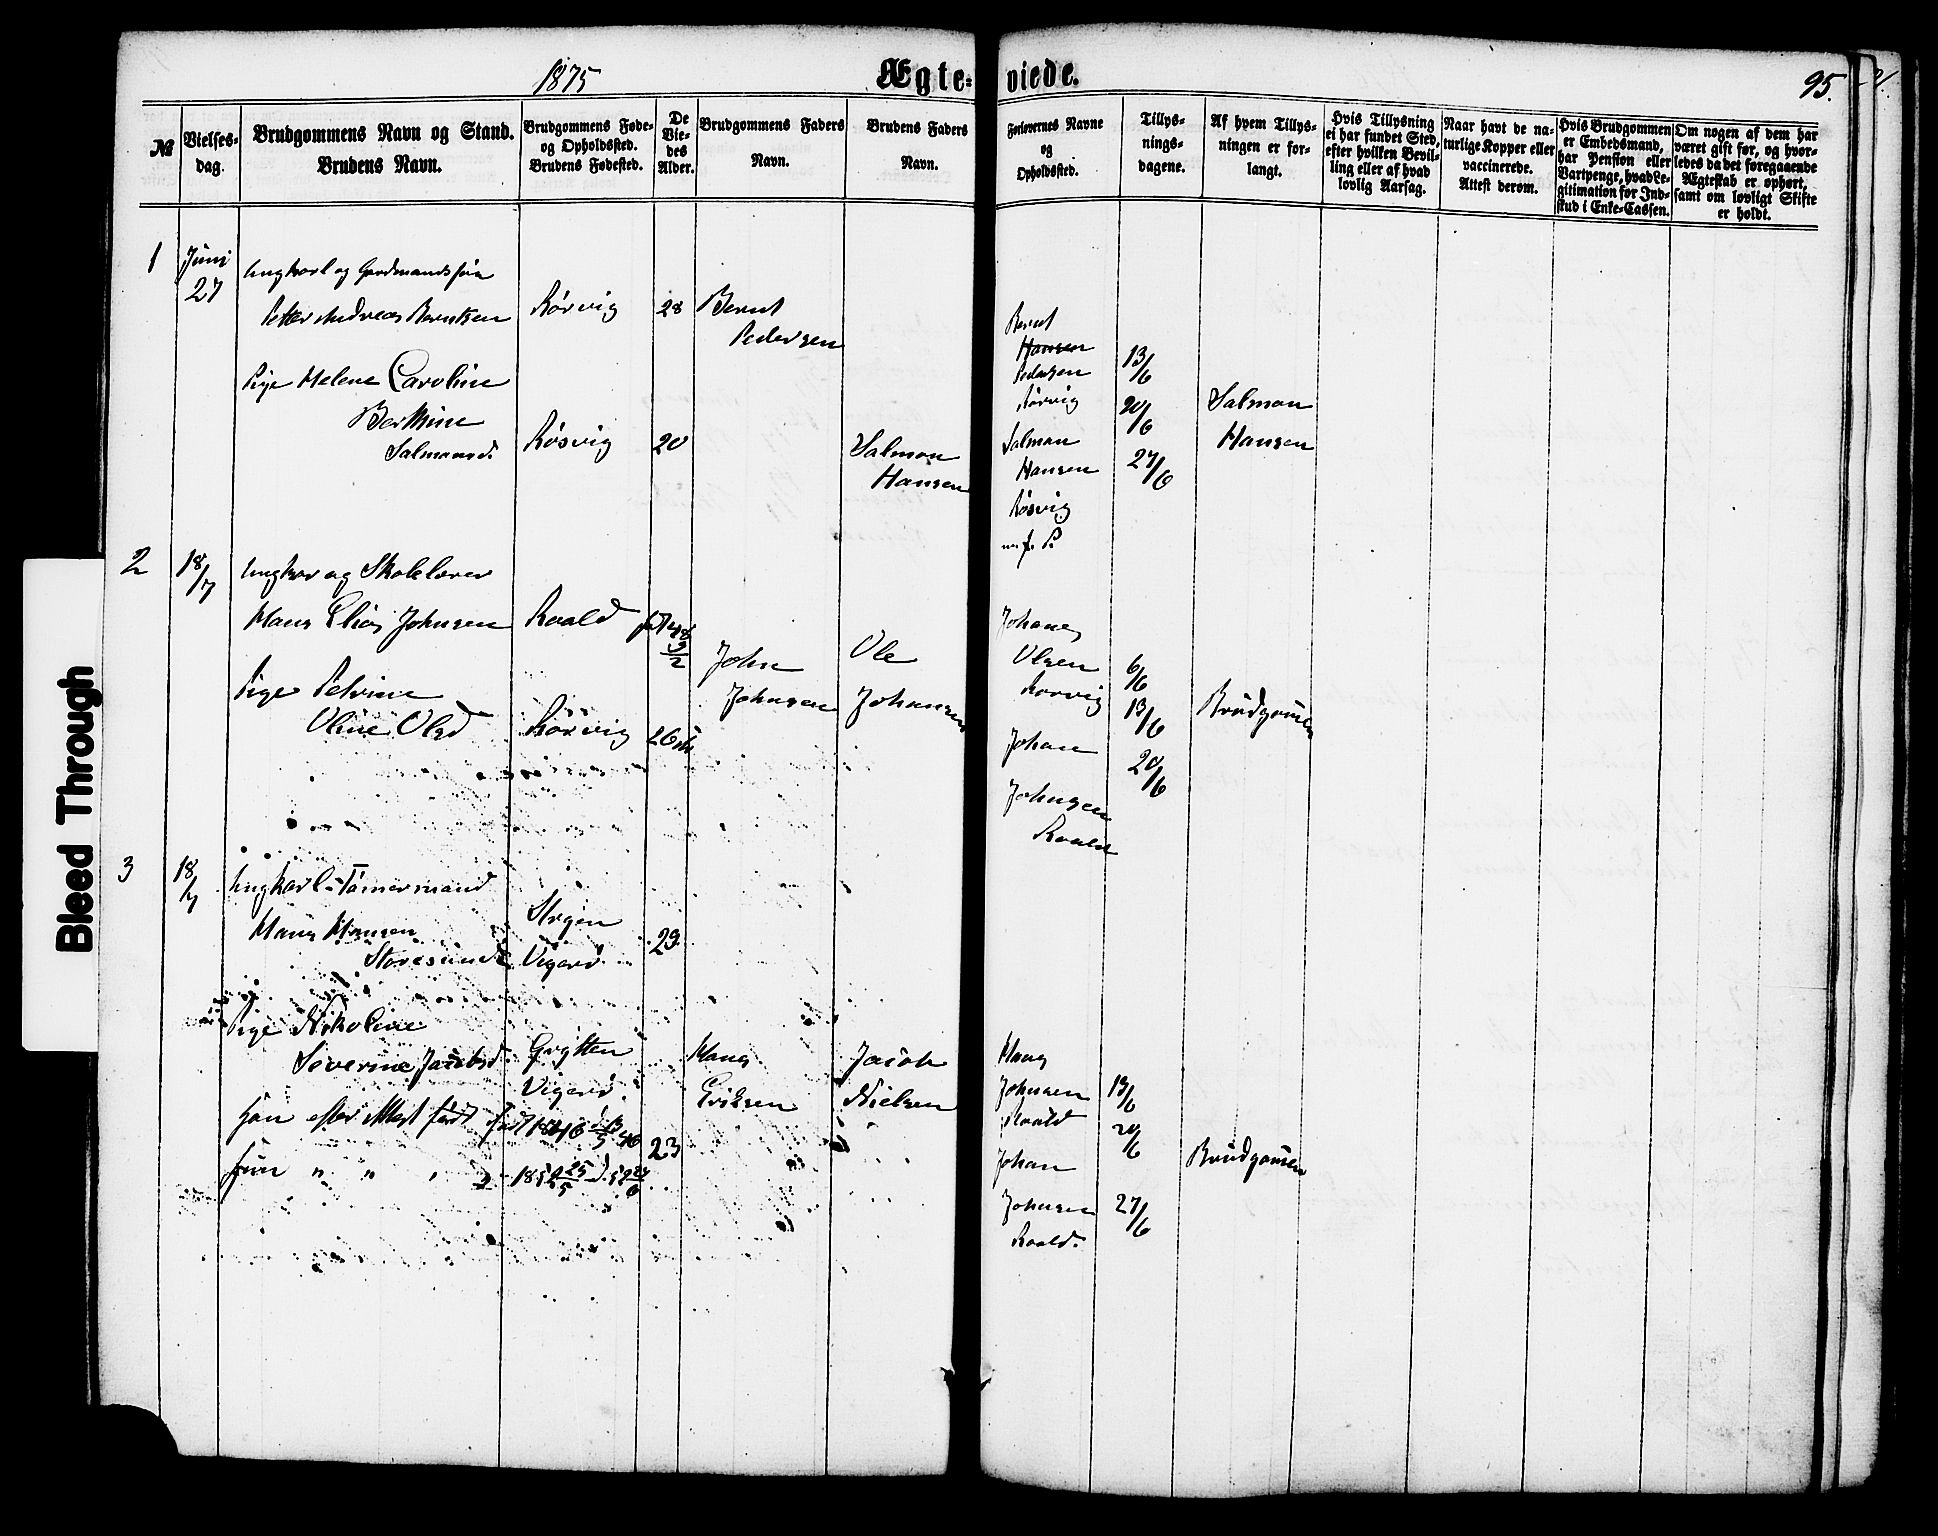 1875
Ægte-
viede.
95.
№
Vielses-
dag.
Brudgommens Navn og Stand.
Brudens Navn.
Brudgommens Føde-
og Opholdssted.
Brudens Fødested.
De
Vie-
des
Alder.
Brudgommens Faders
Navn.
Brudens Faders
Navn.
Forlovernes Navne
og
Opholdssted.
Tillys-
nings-
dagene.
Af hvem Tillys-
ningen er for-
langt.
Hvis Tillysning
ei har fundet Sted,
efter hvilken Bevil-
ling eller af hvad
lovlig Aarsag.
Naar havt de na-
turlige Kopper eller
vaccinerede.
Attest derom.
Hvis Brudgommen
er Embedsmand,
har Pension eller
Vartpenge, hvad Le-
gitimation for Ind-
skud i Enke-Cassen.
Om nogen af dem har
været gift før, og hvor-
ledes da det foregaaende
Ægteskab er ophørt,
samt om lovligt Skifte
er holdt.
1
Juni
27
Ungkarl og Gardmandssøn
Petter Andreas Berntsen
Rørvig
28
Bernt
Pedersen
Pige Helene Caroline
Berthine
Salmonsd.
Røsvig
20
Salmon
Hansen
Bernt
Hansen
Pedersen
Rørvig
Salmon
Hansen
Røsvig
13/6
20/6
27/6
Salmon
Hansen
2
18/7
Ungkar og Skolelærer
Hans Elias Johnsen
Roald
John
Johnsen
Ole
Johansen
Pige Petrine
Oline Olsd
Rørvig
26
Johanes
Olsen
Rorvig
Johan
Johnsen
Roald
6/6
13/6
20/6
Brudgomen
3
18/7
Ungkarl - Tømermand
Hans Hansen
Storesund
Vigerø
29
Pige Nikoline
Severine Jacobsd.
Grytten
Vigerø.
23
Hans
Eriksen
Jacob
Nielsen
Han efter Attest født
Hun " "
Hans
Johnsen
Roald
Johan
Johnsen
Roald.
13/6
20/6
27/6
Brudgomen
Bleed Through